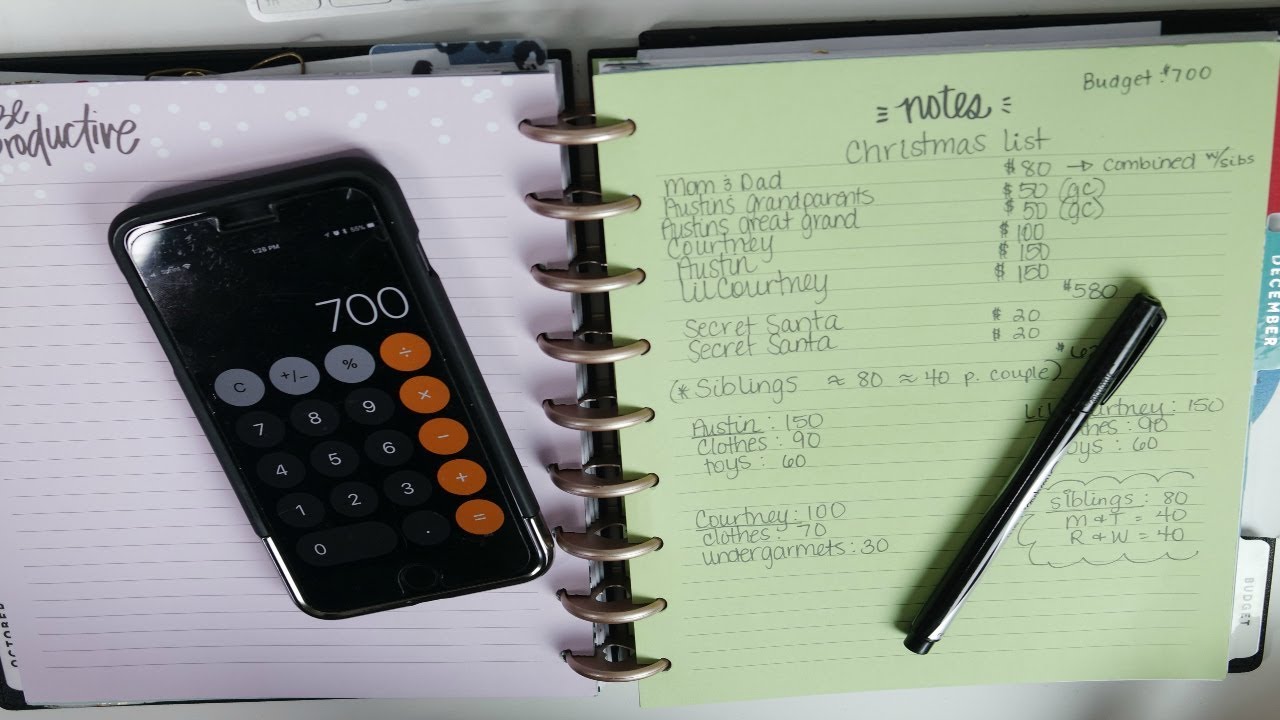 Be
productive
1:28 PM
55%
700
C +/- % ÷
7 8 9 ×
4 5 6 −
1 2 3 +
0 . =
OCTOBER
Budget: $700
notes
Christmas List
Mom & Dad $80 → combined w/sibs
Austins grandparents $50 (gc)
Austins great grand $50 (gc)
Courtney $100
Austin $150
Lil Courtney $150
$580
Secret Santa $20
Secret Santa $20
(* Siblings ≈ 80 ≈ 40 p. couple)
Austin: 150
Clothes: 90
toys: 60
Courtney: 150
90
60
Courtney: 100
clothes: 70
undergarmets: 30
siblings: 80
M & T = 40
R & W = 40
DECEMBER
BUDGET